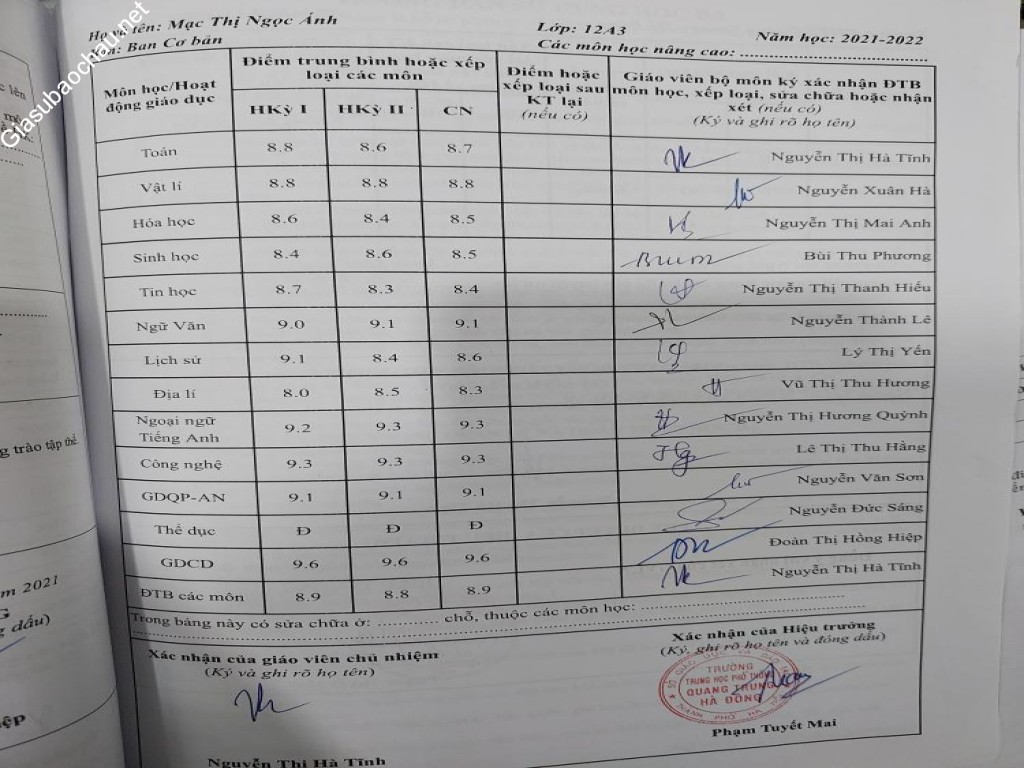 Họ và tên: Mạc Thị Ngọc Ánh Lớp: 12A3 Năm học: 2021-2022
Ban Cơ bản Các môn học nâng cao: ..............................
Môn học/Hoạt động giáo dục
Điểm trung bình hoặc xếp loại các môn
HKỳ I HKỳ II CN
Điểm hoặc xếp loại sau KT lại (nếu có)
Giáo viên bộ môn ký xác nhận ĐTB môn học, xếp loại, sửa chữa hoặc nhận xét (nếu có)
(Ký và ghi rõ họ tên)
Toán 8.8 8.6 8.7 Nguyễn Thị Hà Tĩnh
Vật lí 8.8 8.8 8.8 Nguyễn Xuân Hà
Hóa học 8.6 8.4 8.5 Nguyễn Thị Mai Anh
Sinh học 8.4 8.6 8.5 Bùi Thu Phương
Tin học 8.7 8.3 8.4 Nguyễn Thị Thanh Hiếu
Ngữ Văn 9.0 9.1 9.1 Nguyễn Thành Lê
Lịch sử 9.1 8.4 8.6 Lý Thị Yến
Địa lí 8.0 8.5 8.3 Vũ Thị Thu Hương
Ngoại ngữ Tiếng Anh 9.2 9.3 9.3 Nguyễn Thị Hương Quỳnh
Công nghệ 9.3 9.3 9.3 Lê Thị Thu Hằng
GDQP-AN 9.1 9.1 9.1 Nguyễn Văn Sơn
Thể dục Đ Đ Đ Nguyễn Đức Sáng
GDCD 9.6 9.6 9.6 Đoàn Thị Hồng Hiệp
ĐTB các môn 8.9 8.8 8.9 Nguyễn Thị Hà Tĩnh
Trong bảng này có sửa chữa ở: ............ chỗ, thuộc các môn học: ..............................
Xác nhận của giáo viên chủ nhiệm
(Ký và ghi rõ họ tên)
Nguyễn Thị Hà Tĩnh
Xác nhận của Hiệu trưởng
(Ký, ghi rõ họ tên và đóng dấu)
TRƯỜNG
TRUNG HỌC PHỔ THÔNG
QUANG TRUNG
HÀ ĐÔNG
Phạm Tuyết Mai
Giasubaochau.net
trào tập thể
2021
dấu)